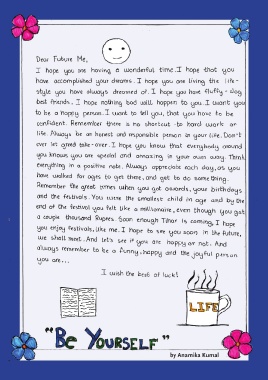 Dear Future Me,
I hope you are having a wonderful time. I hope that you
have accomplished your dreams. I hope you are living the life-
style you have always dreamed of. I hope you have fluffy - dog
best friends. I hope nothing bad will happen to you. I want you
to be a happy person. I want to tell you, that you have to be
confident. Remember there is no shortcut to hard work or
life. Always be an honest and responsible person in your life. Don't
ever let greed take-over. I hope you know that everybody around
you knows you are special and amazing in your own way. Think
everything in a positive note. Always appreciate each day, as you
have waited for ages to get there, and get to do something.
Remember the great times when you got awards, your birthdays
and the festivals. You were the smallest child in age and by the
end of the festival you felt like a millionaire, even though you got
a couple thousand Rupees. Soon enough Tihar is coming, I hope
you enjoy festivals, like me. I hope to see you soon in the future,
we shall meet. And let's see if you are happy or not. And
always remember to be a funny, happy and the joyful person
you are...
I wish the best of luck!
LIFE
"BE YOURSELF"
by Anamika Kumal